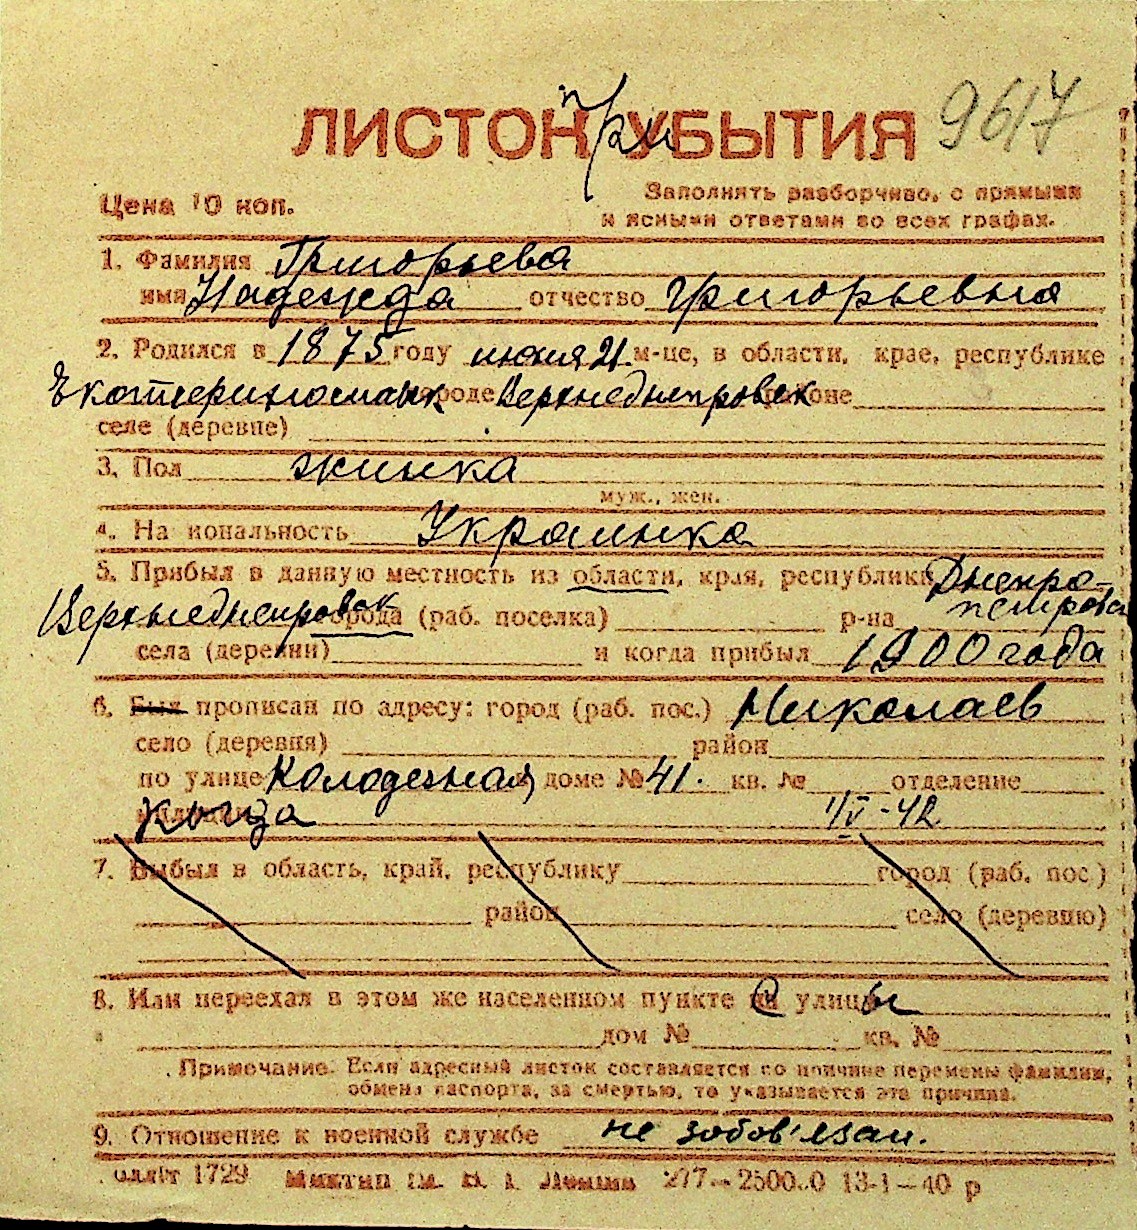 ЛИСТОК УБЫТИЯ при 9617
Цена 10 коп.
Заполнять разборчиво, с прямыми
и ясными ответами во всех графах.
1. Фамилия Григорьева
имя Надежда отчество Григорьевна
2. Родился в 1875 году июня 21 м-це, в области, крае, республике
городе Верхнеднепровск районе
селе (деревне)
3. Пол жинка
муж., жен.
4. Национальность Украинка
5. Прибыл в данную местность из области, края, республики Днепро-
петровск
Верхнеднепровск города (раб. поселка) р-на
села (деревни) и когда прибыл 1900 года
6. Был прописан по адресу: город (раб. пос.) Николаев
село (деревня) район
по улице Колодезная доме № 41. кв. № отделение
1/IV-42
7. Выбыл в область, край, республику город (раб. пос.)
район село (деревню)
8. Или переехал в этом же населенном пункте с улицы
дом № кв. №
Примечание. Если адресный листок составляется по причине перемены фамилии,
обмена паспорта, за смертью, то указывается эта причина.
9. Отношение к военной службе не зобов'язан.
1729 277—2500.0 13-1—40 р